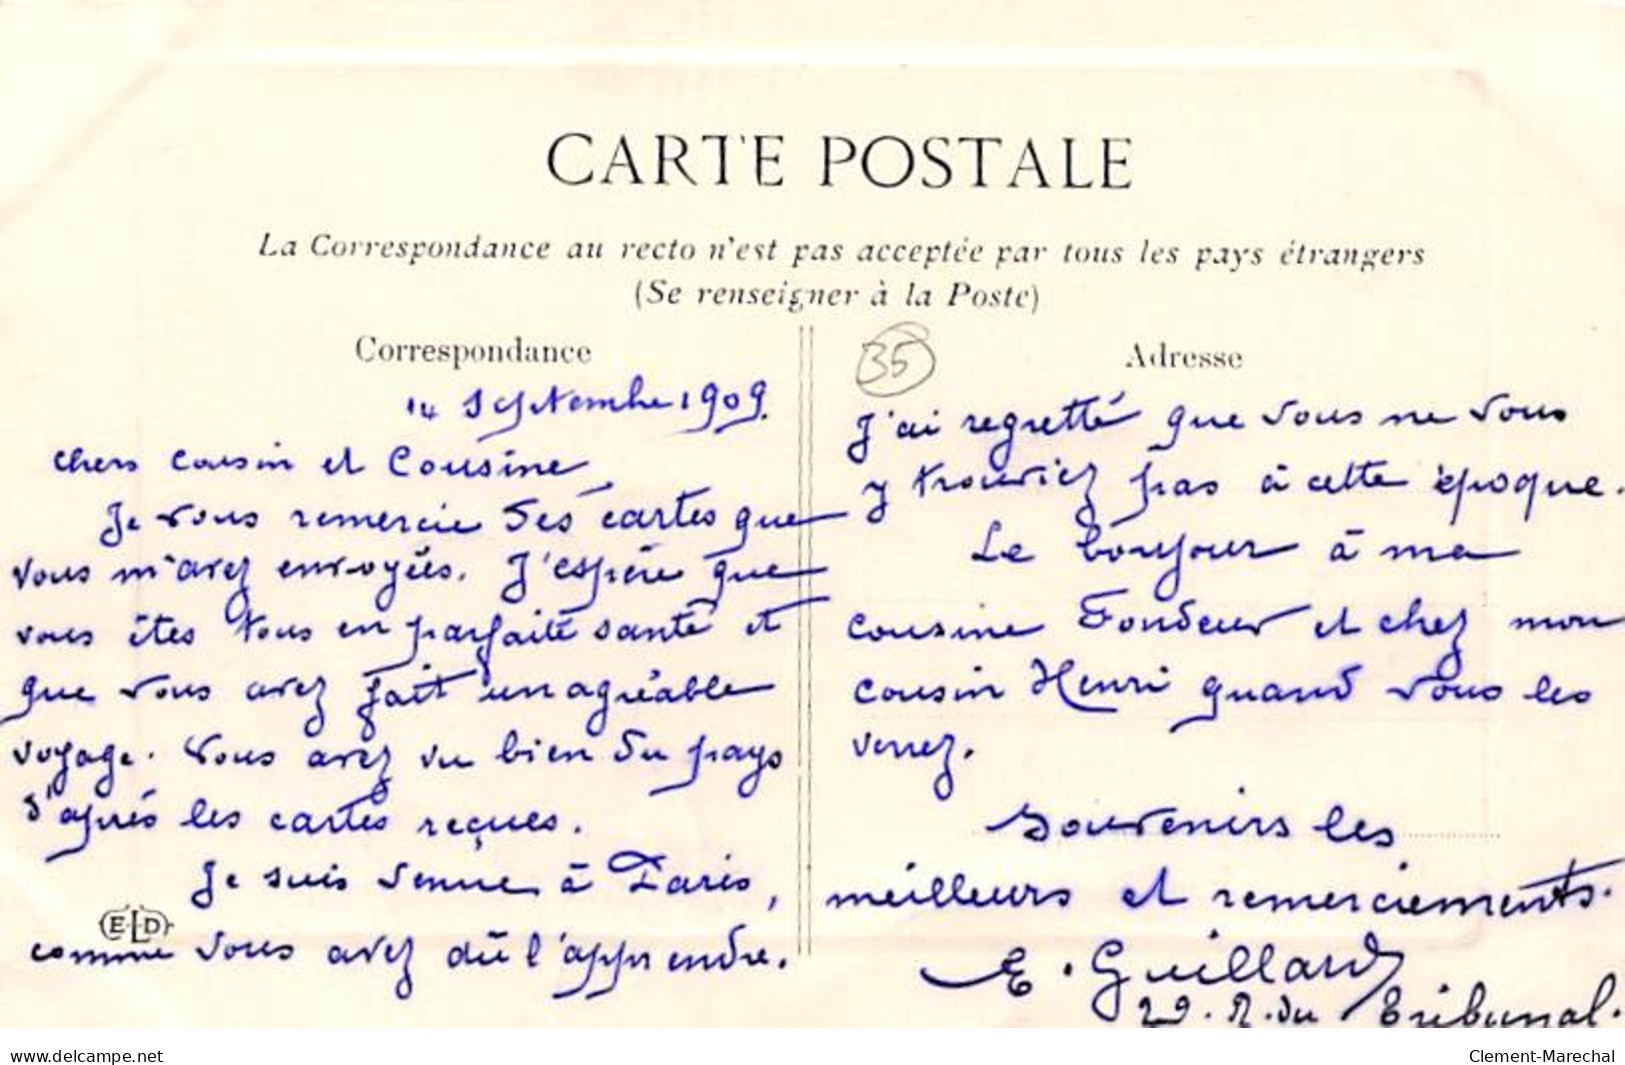 CARTE POSTALE
La Correspondance au recto n'est pas acceptée par tous les pays étrangers
(Se renseigner à la Poste)
Correspondance
14 Septembre 1909.
Chers Cousin et Cousine,
Je vous remercie des cartes que
vous m'avez envoyées. J'espère que
vous êtes tous en parfaite santé et
que vous avez fait un agréable
voyage. Vous avez vu bien du pays
d'après les cartes reçues.
Je suis venue à Paris,
comme vous avez dû l'apprendre.
ELD
35
Adresse
J'ai regretté que vous ne vous
y trouviez pas à cette époque.
Le bonjour à ma
cousine Fondeur et chez mon
cousin Henri quand vous les
verrez.
Souvenirs les
meilleurs et remerciements.
E. Guillard
29. R. du Tribunal.
www.delcampe.net
Clement-Marechal